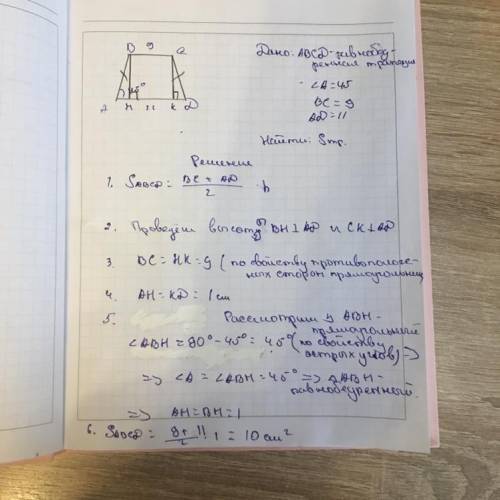 B 9 C
45°
A H 11 K D
Дано: ABCD-равнобед-
ренная трапеция
∠A=45
BC = 9
AD = 11
Найти: Sтр.
Решение
1. SABCD = BC + AD / 2 · h
2. Проведём высоты BH⊥AD и CK⊥AD
3. BC = HK = 9 (по свойству противополож-
ных сторон прямоугольник
4. AH = KD = 1 см
5. Рассмотрим ABH-
прямоугольный
∠ABH = 90°-45° = 45° (по свойству
острых углов) =>
=> ∠A = ∠ABH = 45° => △ABH-
равнобедренный.
=> AH = BH = 1
6. SABCD = 9+11 / 2 · 1 = 10 см²